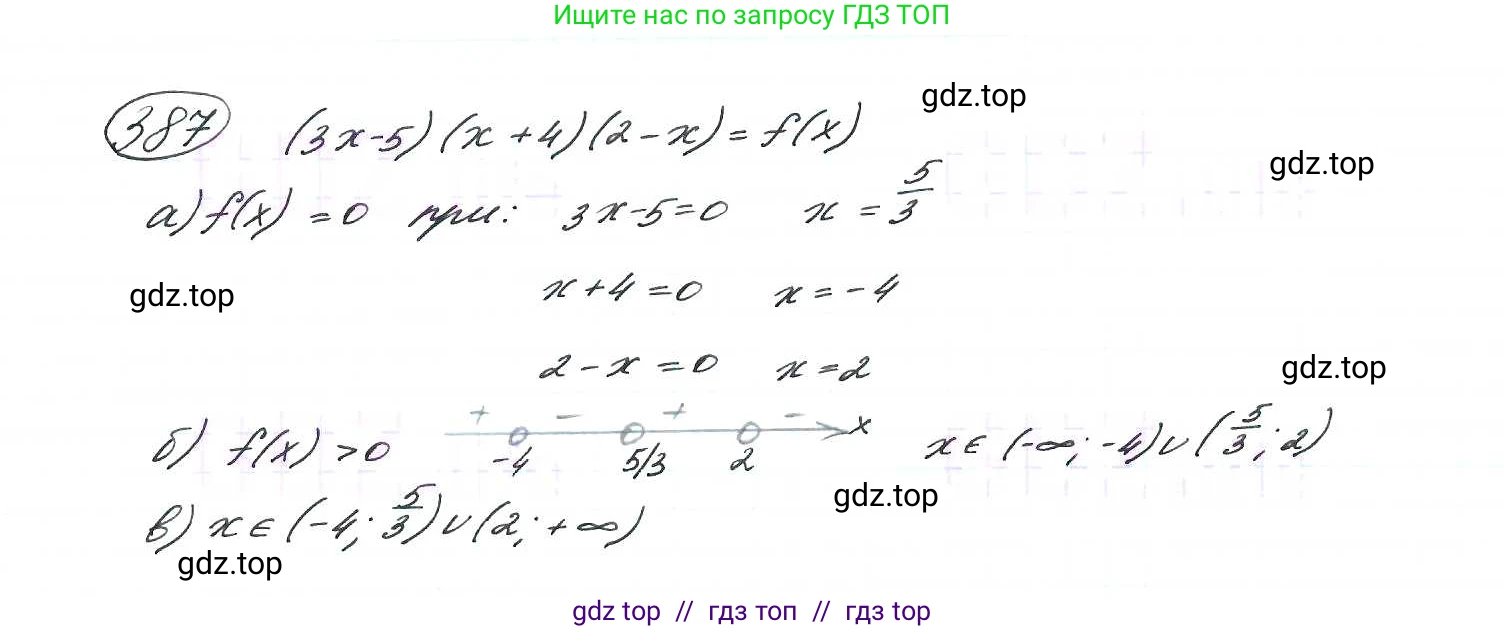 Ищите нас по запросу ГДЗ ТОП
387 (3x-5)(x+4)(2-x)=f(x)
gdz.top
gdz.top
а) f(x)=0 при: 3x-5=0 x=5/3
x+4=0 x=-4
gdz.top
2-x=0 x=2
gdz.top
+ - + -
б) f(x)>0 -4 5/3 2 x x∈(-∞;-4)∪(5/3;2)
gdz.top
в) x∈(-4;5/3)∪(2;+∞)
gdz.top
gdz top // гдз топ // гдз top